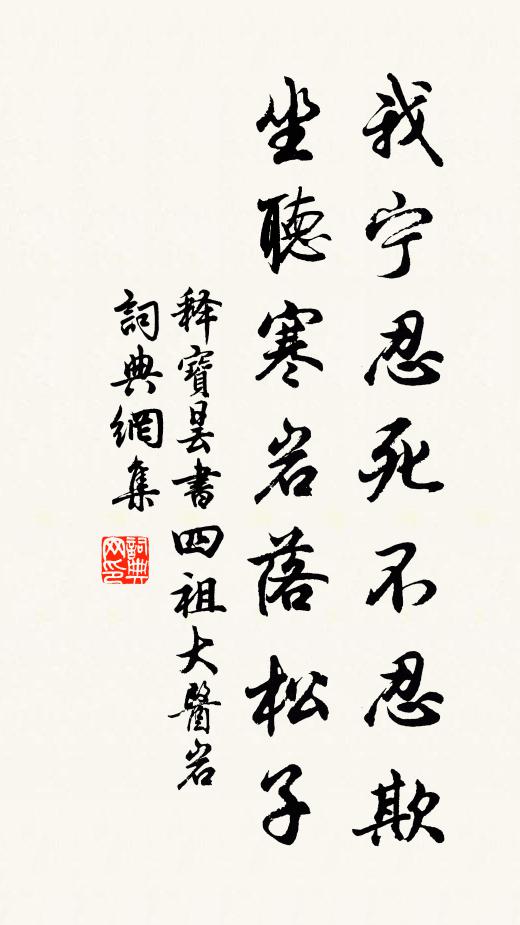 我宁忍死不忍欺
坐聽寒岩落松子
释寶昙書四祖大醫岩
詞典網集
詞典网印